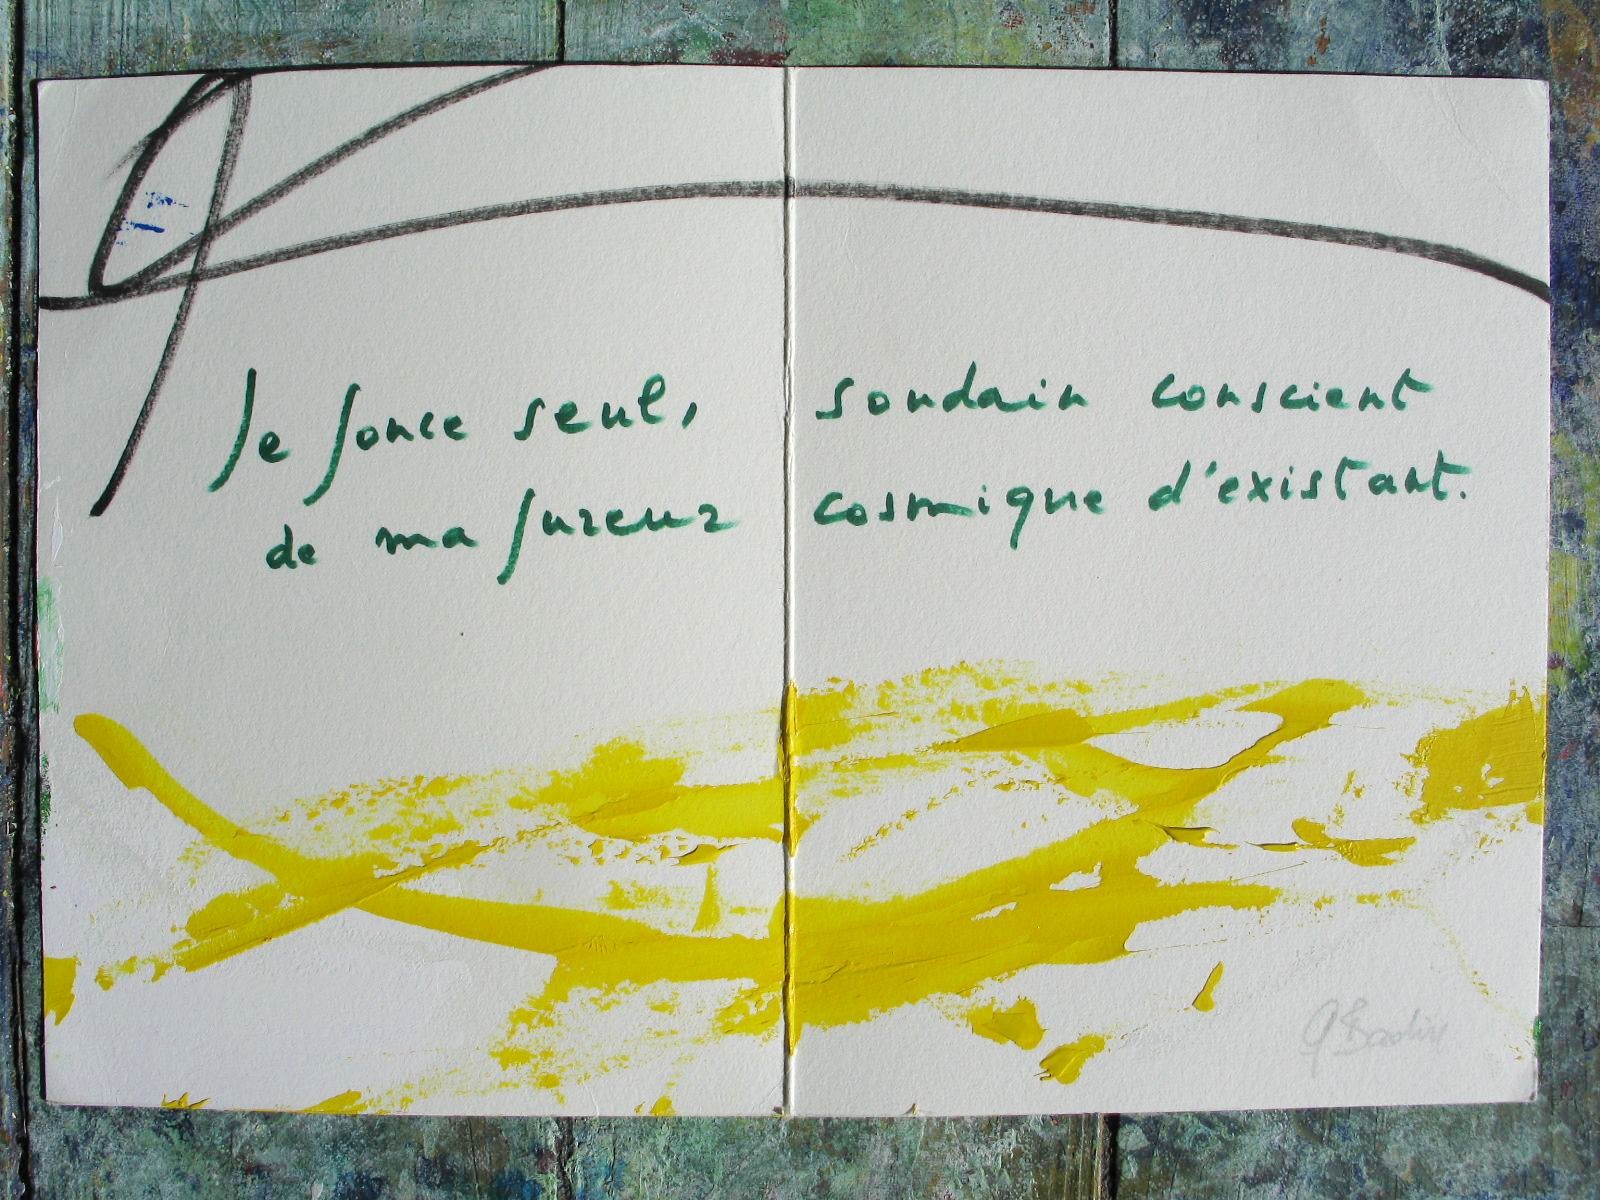 Je fonce seul, soudain conscient
de ma fureur cosmique d'existant.
G Badin